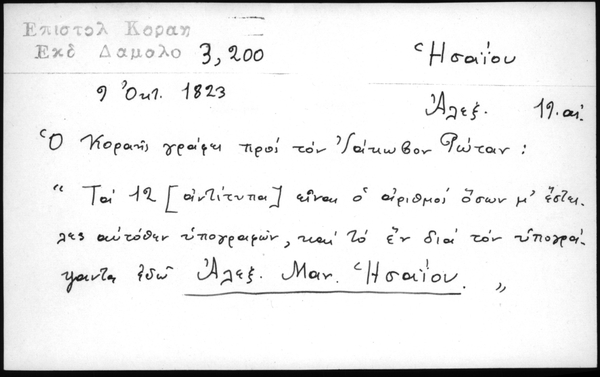 Επιστολ Κοραη
Εκδ Δαμαλο 3,200
Ἡσαΐου
9 Ὀκτ. 1823
Ἀλεξ. 19. αἰ.
Ὁ Κοραῆς γράφει πρός τόν Ἰάκωβον Ρώταν:
“ Τά 12 [ἀντίτυπα] εἶναι ὁ ἀριθμός ὅσων μ' ἔστει-
λες αὐτόθεν ὑπογραφῶν, καί τό ἕν διά τόν ὑπογρά-
ψαντα ἐδῶ Ἀλεξ. Μαν. Ἡσαΐου. „